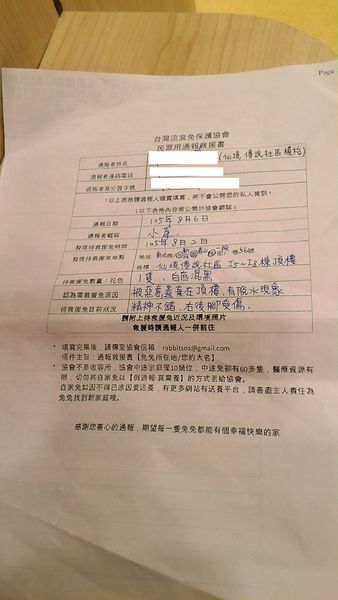 Page
台灣流浪兔保護協會
民眾用通報救援書
通報者姓名 (仙境傳說社區樓抬
通報者連絡電話
通報者身分證字號
*以上表格請通報人確實填寫，將不會公開您的個人資訊!
(以下表格內容將公開於協會網站)
通報日期 105年8月6日
通報者暱稱 小草
發現待救援兔時間 105年8月2日
發現待救援兔地點 地址 一段 56號
地標 仙境傳說社區 I5~I8棟頂樓
待救援兔數量/花色 1隻，白底混黑
認為需救援兔原因 被惡意遺棄在頂樓 有脫水現象
待救援兔目前狀況 精神不錯，右後腳受傷
請附上待救援兔近況及環境照片
救援時請通報人一併前往
• 填寫完畢後，請傳至協會信箱：rabbitsos@gmail.com
信件主旨：通報救援書【兔兔所在地/您的大名】
• 協會不是收容所，協會中途家庭僅10幾位，中途兔卻有60多隻，醫療資源有
限，切勿將自家兔以【假通報·真棄養】的方式丟給協會。
自家兔如因不得已原因要送養，有更多網站有送養平台，請善盡主人責任為
兔兔找到新家庭哦。
感謝您善心的通報，期望每一隻兔兔都能有個幸福快樂的家